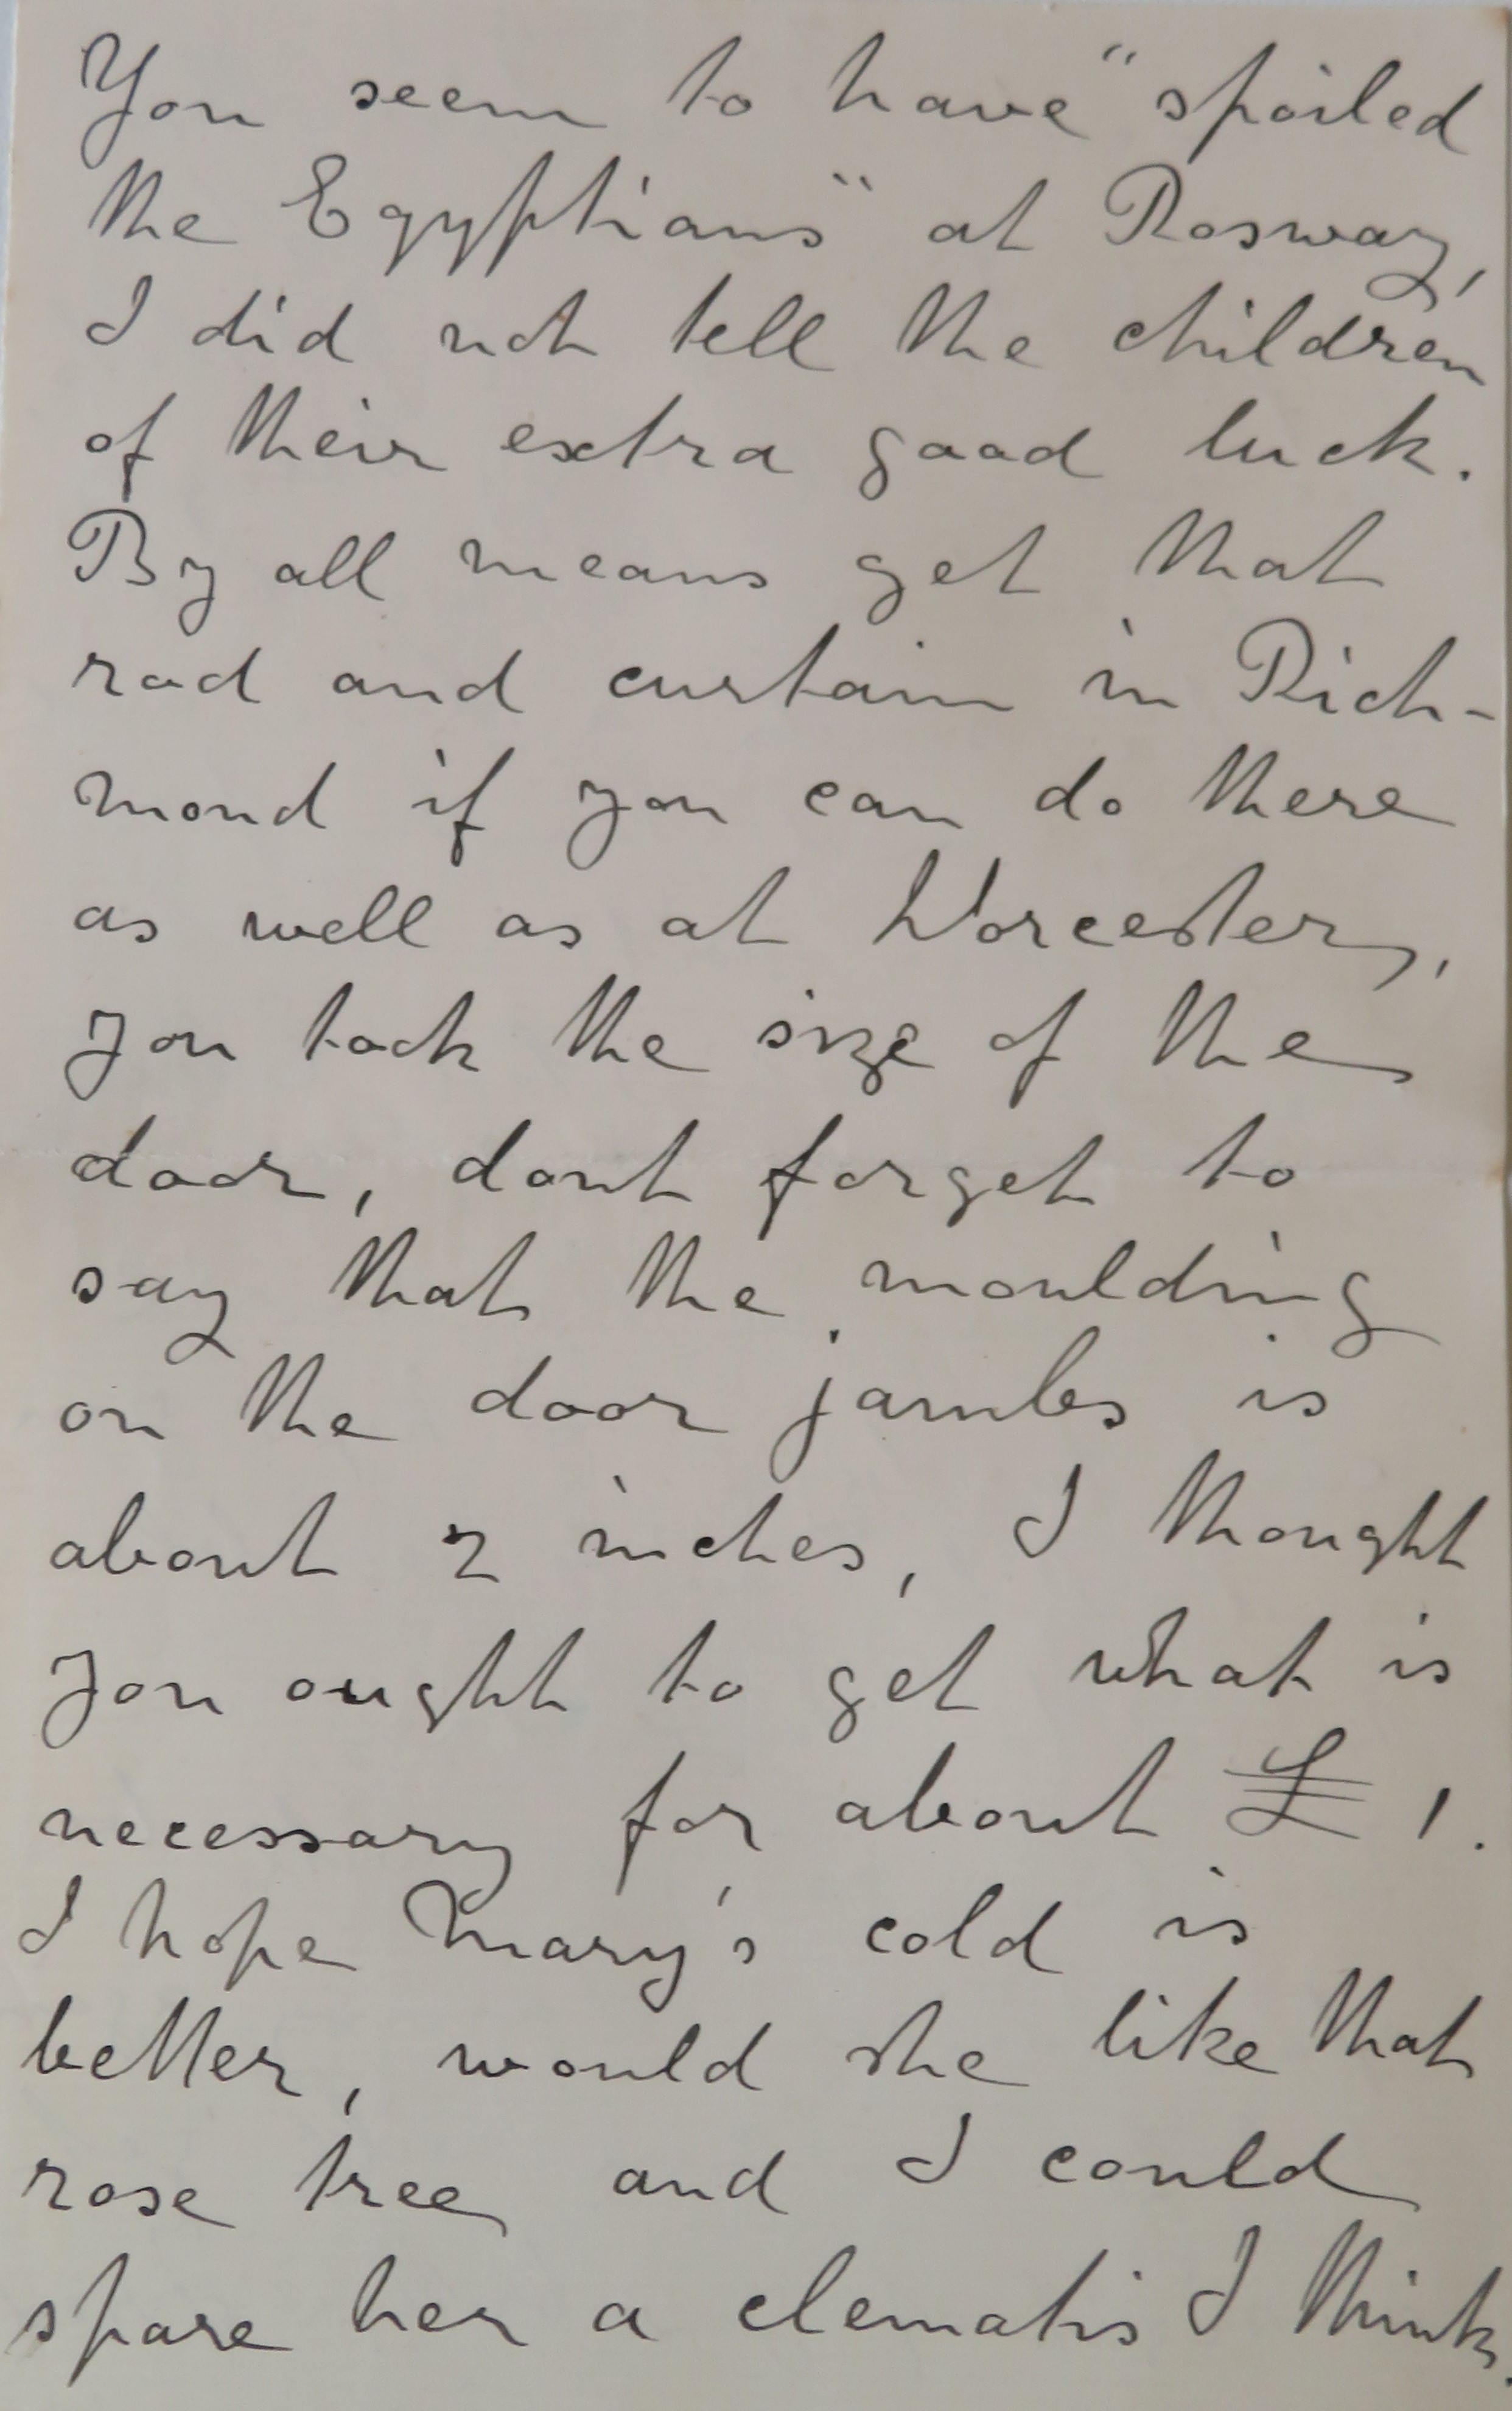 You seem to have "spoiled
the Egyptians" at Rosway,
I did not tell the children
of their extra good luck.
By all means get that
rod and curtain in Rich-
mond if you can do there
as well as at Worcester,
you took the size of the
door, dont forget to
say that the moulding
on the door jambs is
about 2 inches, I thought
you ought to get what is
necessary for about £1.
I hope Mary's cold is
better, would she like that
rose tree and I could
spare her a clematis I think.